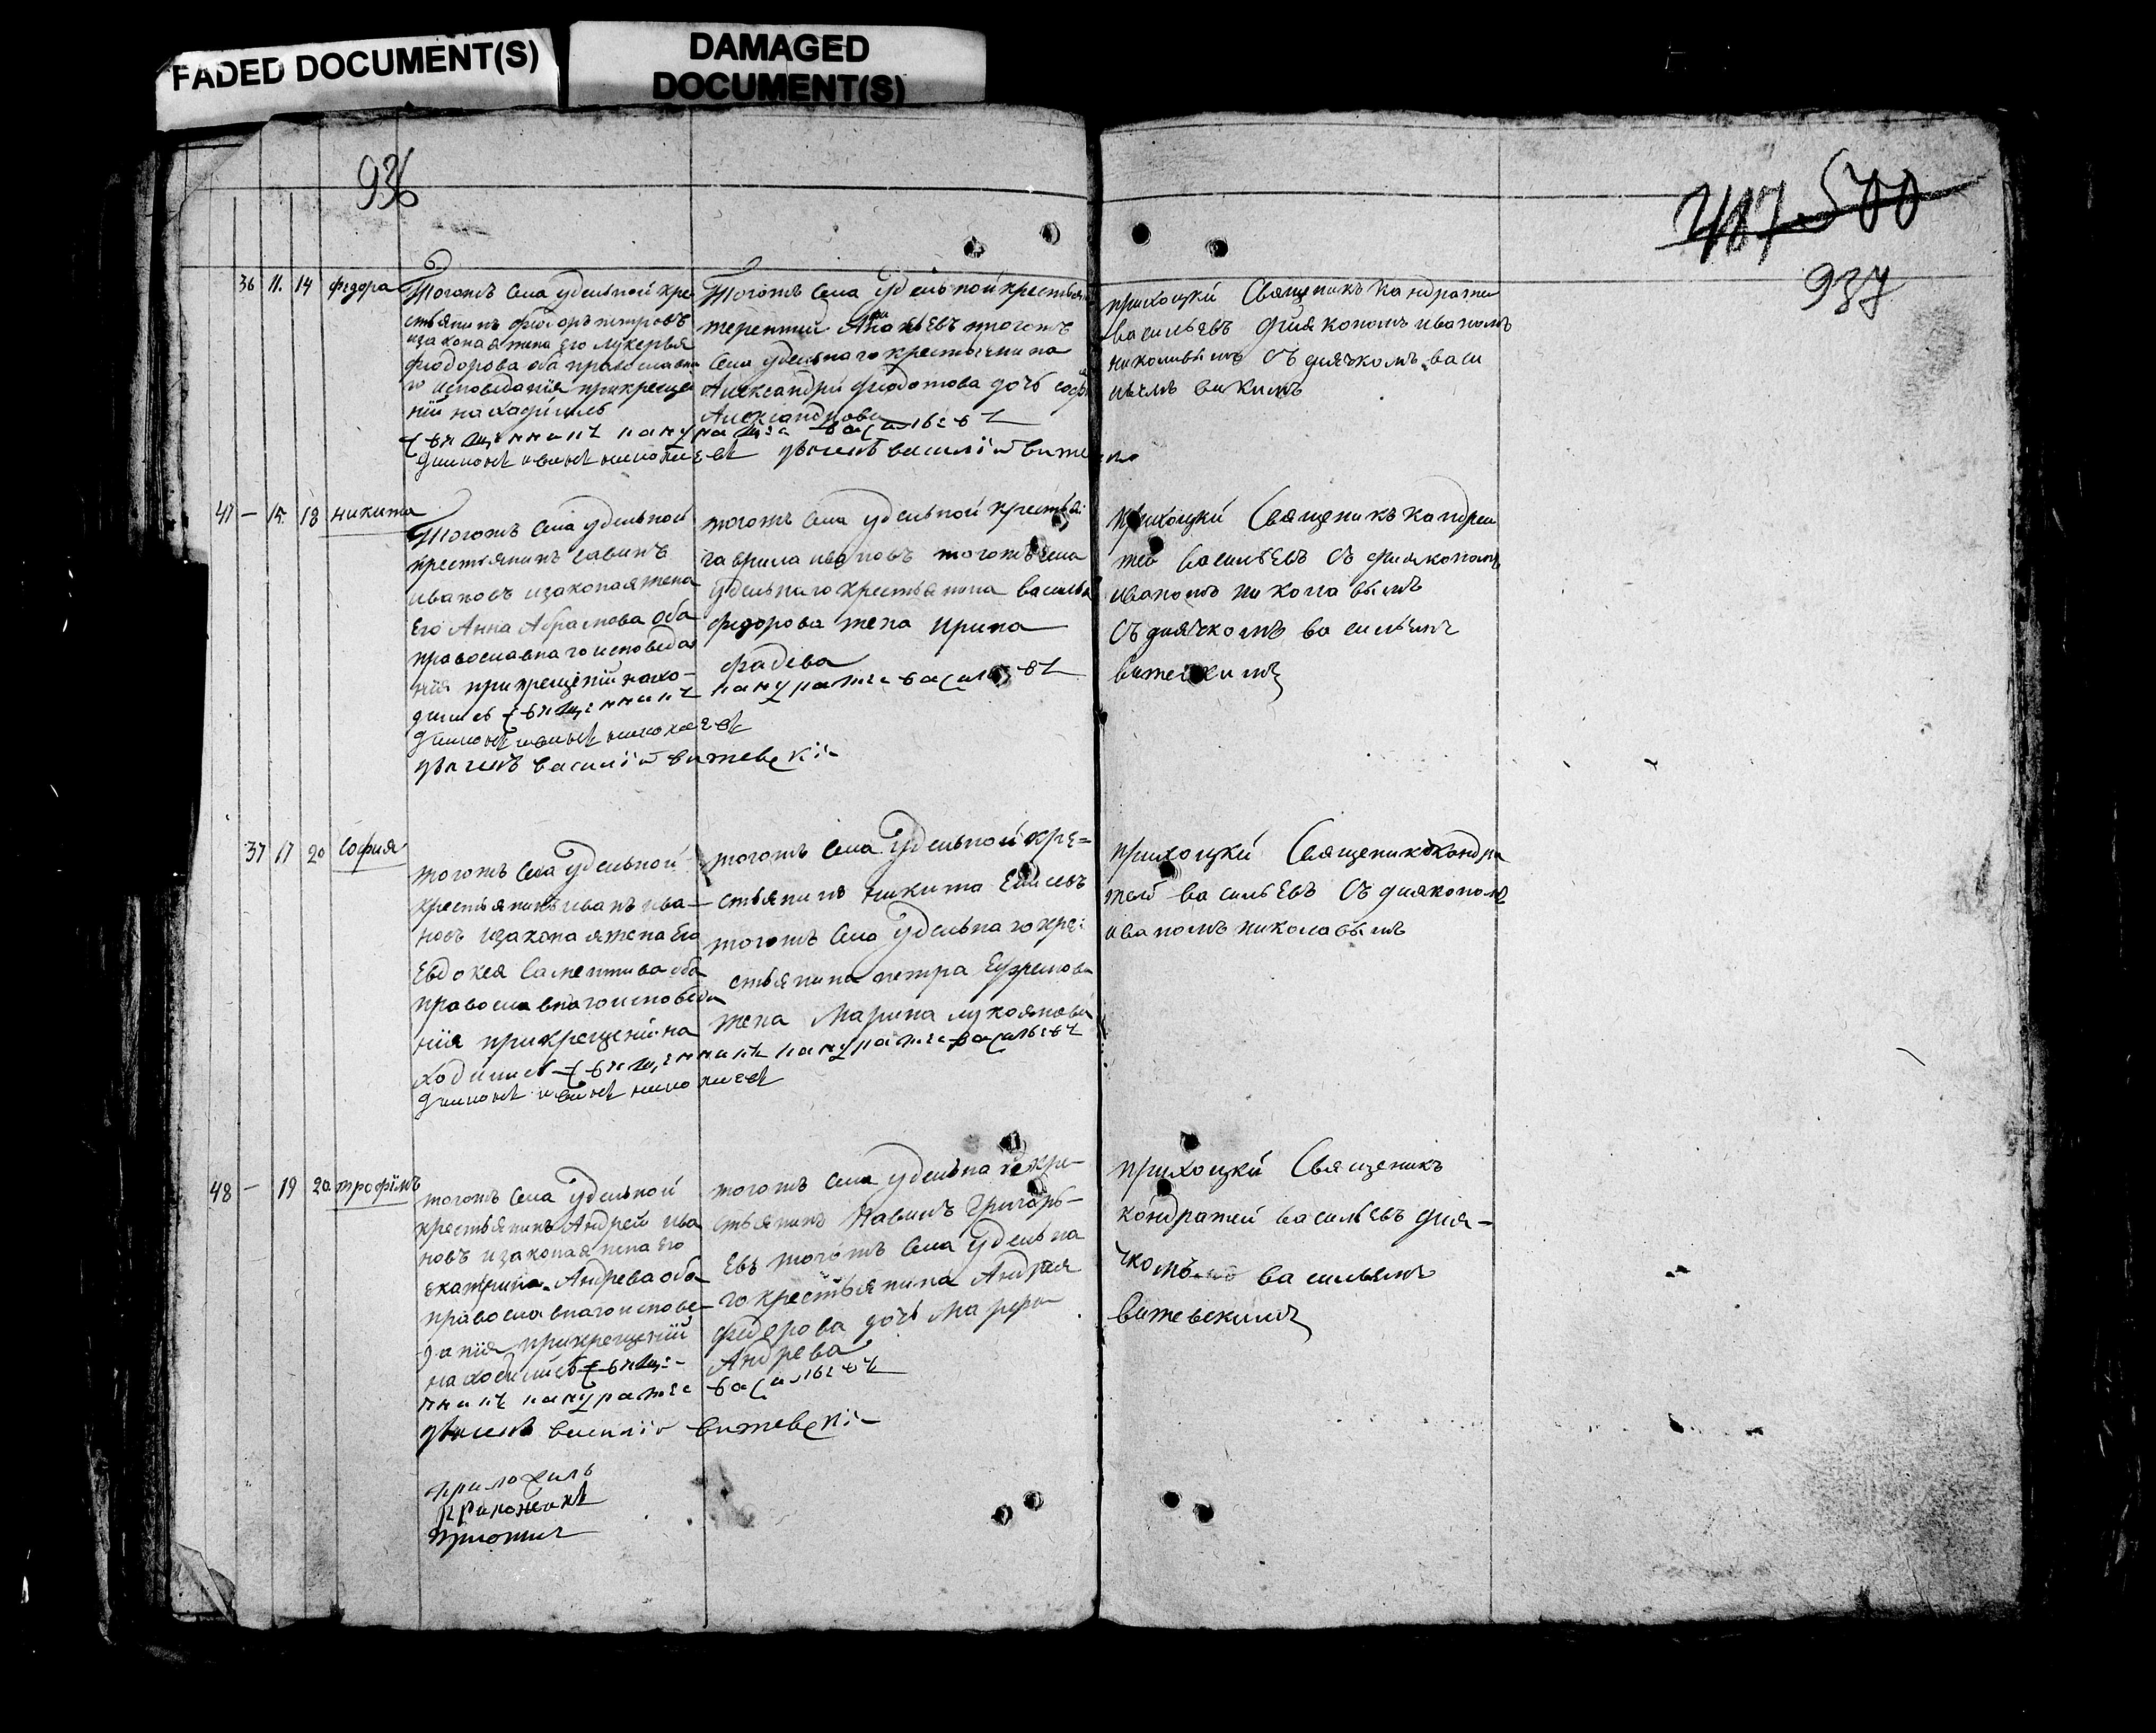 FADED DOCUMENT(S)
DAMAGED
DOCUMENT(S)
936
487 500
937
36 11. 14 федора
Тогожъ села удельной кре
стьянинъ фиодоръ петровъ
изаконая жена его лукерья
фиодорова оба православна
го исповеданïя прикреще
нïй находились
Священникъ
диаконъ иванъ николаевъ
Тогожъ села удельной крестья
терентий тогожъ
села удельнаго крестьянина
Александра фиодотова дочь софь
Александрова
василевъ
дьячекъ василïй
приходцкй Священикъ Кандратей
васильевъ дйякономъ иваномъ
николавымъ съ диячкомъ васи
47 — 15 18 никита
Тогожъ села удельной
крестьянинъ савинъ
ивановъ изаконая жена
Его Анна Абрамова оба
православнаго исповеда
нïя прикрещенïй нахо-
дились Священникъ кандратей василевъ
диаконъ иванъ николаевъ
дьячекъ василïй витевскïй
тогожъ села удельной крестья:
гаврила ивановъ тогожъ села
удельнаго крестьянина василья
федорова жена ирина
фадева
приходцкй Священикъ кандра
тей васильевъ съ диякономъ
иваномъ николавымъ
съ диячкомъ васильемъ
витевскимъ
37 17 20 София
тогожъ села удельной
крестьянинъ иванъ ива-
новъ изаконая жена Его
Евдокея оба
православнаго исповеда
нïя прикрещенïй на
ходились Священникъ кандратей василевъ
диаконъ иванъ николаевъ
тогожъ села удельной кре=
стьянинъ никита Елисевъ
тогожъ села удельнаго кре:
стьянина петра Ефремова
жена Марина лукоянова
приходцкй Священикъ кондра
тей васильевъ съ диякономъ
иваномъ николавымъ
48 — 19 20 трофимъ
тогожъ села удельной
крестьянинъ Андрей ива
новъ изаконая жена Его
екатрина Андрева оба
православнаго испове-
данïя прикрещенïй
находились Священ-
никъ кандратей василевъ
дьячекъ василïй витевскïй
тогожъ села удельна кре-
стьянинъ Павилъ Григорь-
Евъ тогожъ села удельна
го крестьянина Андрея
федерова дочь Марфа
Андрева
приходцкй Священикъ
кондратей васильевъ дия-
чкомъ васильемъ
витевскимъ